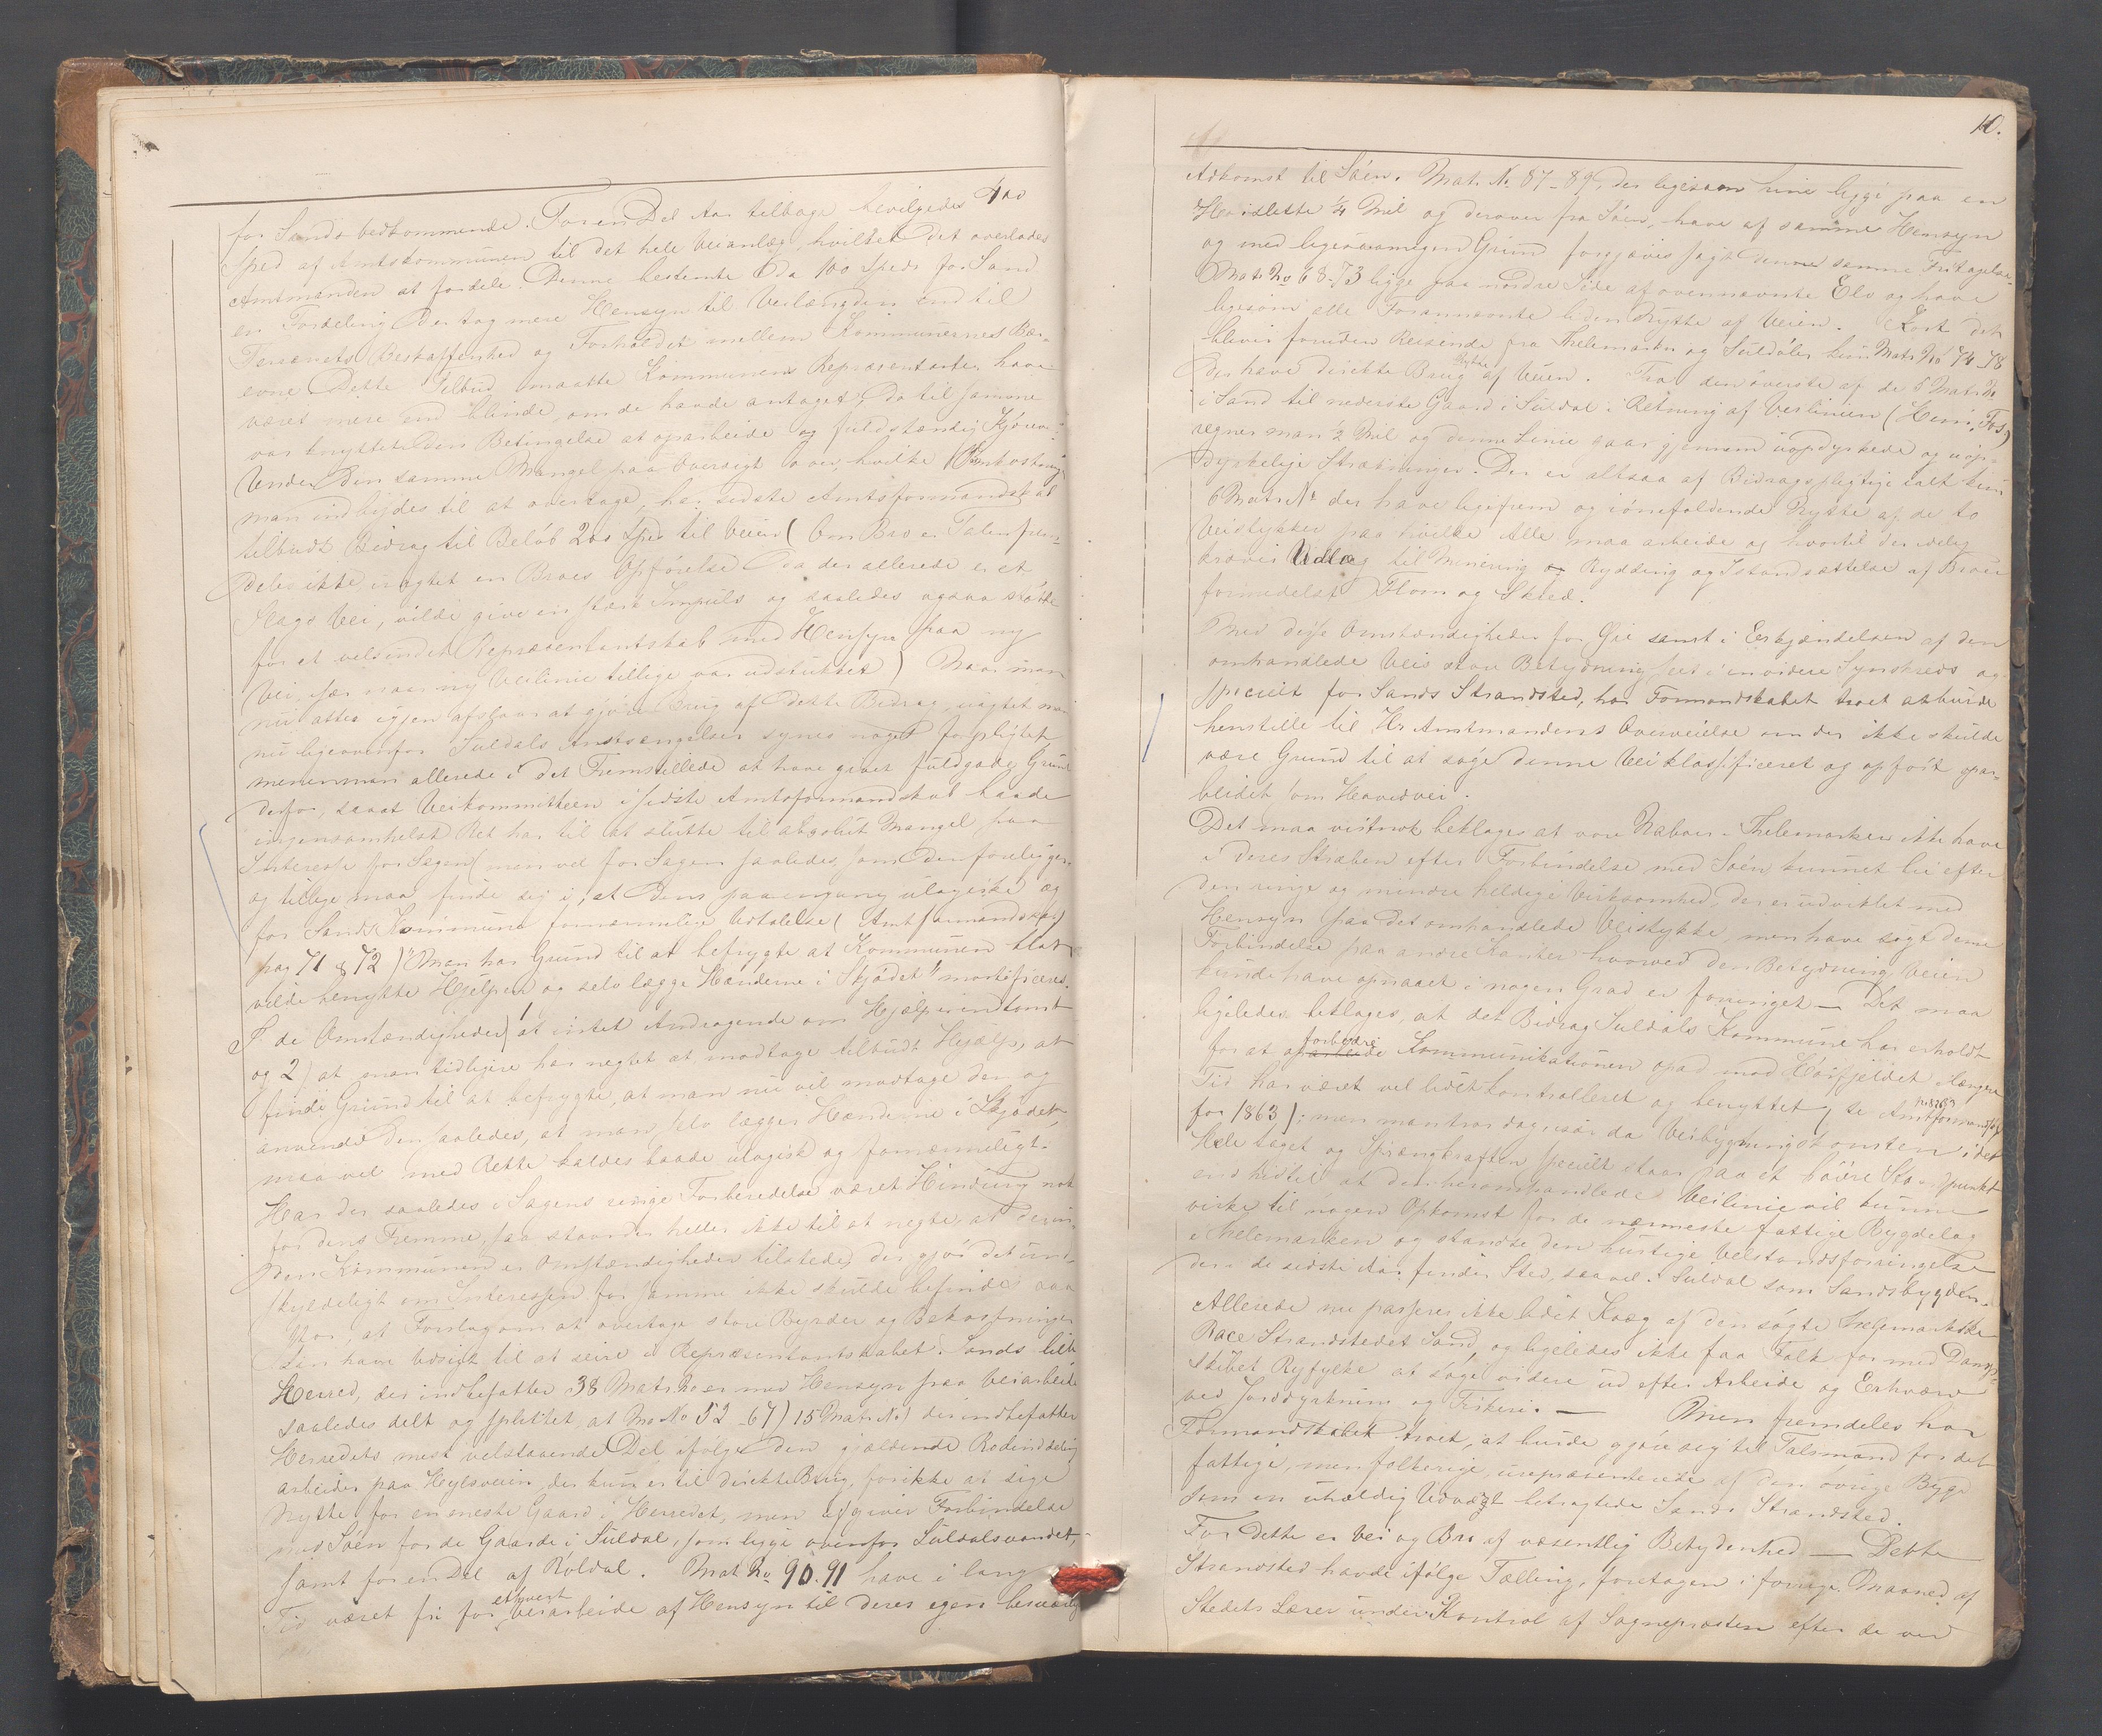 for Sands vedkommende. For en Del Aar tilbage bevilgedes 400
Spd af Amtskommunen til det hele Veianlæg, hvilket det overlodes
Amtmanden at fordele. Denne bestemte da 100 Spd for Sand
en Fordeling der tog mere Hensyn til Veilængden end til
Terrænets Beskaffenhed og Forholdet mellem Kommunernes Bær-
evne Dette Tilbud maatte Kommunens Repræsentanter have
været mere end blinde, om de havde antaget, da til samme
var knyttet den Betingelse at oparbeide og fuldstændig Kjørevei.
Under den samme Mangel paa Oversigt over, hvilke Bekostninger
man indbydes til at overtage, har sidste Amtsformandskab
tilbudt Bidrag til Beløb 200 Spd til Veien (Om Bro er Talen frem-
deles ikke, uagtet en Broes Opførelse da der allerede er et
Slags Vei, vilde give en stærk Impuls og saaledes ogsaa støtte
for et velsindet Repræsentantskab med Hensyn paa ny
Vei, især naar ny Veilinie tillige var udstukket) Naar man
nu atter igjen afslaar at gjøre Brug af dette Bidrag, uagtet man
nu ligeoverfor Suldals Anstrængelser synes noget forpligtet
mener man allerede i det Fremstillede at have givet fuldgode Grunde
derfor, saaat Veikommitteen i sidste Amtsformandskab havde
ingensomhelst Ret har til at slutte til absolut Mangel paa
Interesse for Sagen (men vel for Sagen saaledes som den foreligger
og tillige maa finde sig i, at dens paa engang ulogiske og
for Sands Kommune fornærmelige Udtalelse (Amtsformandskab
pag 71 & 72) "Man har Grund til at befrygte at Kommunen blot
vilde benytte Hjelpen og selv lægge Hænderne i Skjødet" mortificeres.
I de Omstændigheder 1) at intet Andragende om Hjælp er indkomst
og 2) at man tidligere har negtet at modtage tilbudt Hjælp, at
finde Grund til at befrygte, at man nu vil modtage den og
anvende den saaledes, at man selv lægger Hænderne i Skjødet,
maa vel med Rette kaldes baade ulogisk og fornærmeligt.
Har der saaledes i Sagens ringe Forberedelse været Hindring nok
for dens Fremme, saa staar der heller ikke til at negte, at der in-
den Kommunen er Omstændigheder tilstede, der gjør det und-
skyldeligt om Interessen for samme ikke skulde befindes saa
stor, at Forslag om at overtage store Byrder og Bekostninger
kan have Udsigt til at seire i Repræsentantskabet. Sands lille
Herred, der indbefatter 38 Matr. No er med Hensyn paa Veiarbeide
saaledes delt og splittet, at M No 52-67) 15 Matr No) der indbefatter
Herredets mest velstaaende Del ifølge den gjældende Rodeinddeling
arbeider paa Hylsveien der kun er til direkte Brug, for ikke at sige
Nytte for eneste Gaard i Herredet, men afgiver Forbindelse
med Søen for de Gaarde i Suldal, som ligge ovenfor Suldalsvandet,
samt for en Del af Røldal. Mat No 90.91 have i lang
Tid været fri for ethvert Veiarbeide af Hensyn til deres egen besværlig
10.
Adkomst til Søen. Matr. No. 87-89, der ligesom hine ligge paa en
Heislette 1/4 Mil og derover fra Søen, have af samme Hensyn
og med ligesaamegen Grund forgjæves søgt denne samme Fritagelse.
Matr No 68-73 ligge paa nordre Side af ovennævnte Elv og have
ligesom alle Foranævnte liden Nytte af Veien. Kort det
bliver foruden Reisende fra Thelemarken og Suldøler kun Matr No 74-78
der have direkte Brug af Veien. Fra den øverste af de 5 Matr No
i Sand til nederste Gaard i Suldal i Retning af Veilinien (Heim, Fos.)
regner man 1/2 Mil og denne Linie gaar gjennem uopdyrkede og uop-
dyrkelige Strækninger. Der er altsaa af Bidragspligtige ialt kun
6 Matr No der have ligefrem og iøinefaldende Nytte af de to
Veistykker paa hvilke Alle maa arbeide og hvortil der idelig
kræves Udlæg til Minering og Rydding og Istandsættelse af Broer
formedelst Flom og Skred.
Med disse Omstændigheder for Øie samt i Erkjendelsen af den
omhandlede Veis store Betydning seet i en videre Synskreds og
specielt for Sands Strandsted, har Formandskabet troet at burde
henstille til Hr Amtmandens Overveielse om der ikke skulde
være Grund til at søge denne Vei klassificeret og opført opar-
beidet som Hovedvei.
Det maa vistnok beklages at vore Naboer - Thelemarken ikke have
i deres Stræben efter Forbindelse med Søen kunnet bie efter
den ringe og mindre heldige Virksomhed, der er udviklet med
Hensyn paa det omhandlede Veistykke, men have søgt denne
Forbindelse paa andre Kanter hvorved den Betydning Veien
kunde have opnaaet i nogen Grad er forringet — Det maa
ligeledes beklages, at det Bidrag Suldals Kommune har erholdt
for at oparbeide forbedre Kommunikationen opad mod Høifjeldet i længere
Tid har været vel lidet kontrolleret og benyttet (se Amtsformandsk
for 1863); men man tror dog nu, da Veibygningskonsten i det
Hele taget og Sprængkraften specielt staar paa et høiere Standpunkt
end hidtil at den heromhandlede Veilinie vil kunne
virke til nogen Opkomst for de nærmeste fattige Bygdelag
i Thelemarken og standse den hurtige Velstandsforringelse
der i de sidste Aar finder Sted, saavel i Suldal som Sandsbygden.
Allerede nu passerer ikke lidet Kvæg af den søgte Thelemarkske
Race Strandstedet Sand, og ligeledes ikke faa Folk for med Damp-
skibet Ryfylke at søge videre ud efter Arbeide og Erhverv
ved Jorddyrkning og Fiskeri. — Men fremdeles har
Formandskabet troet, at burde gjøre sig til Talsmand for det
fattige, men folkerige, urepræsenterede af den øvrige Bygd
som en uheldig Udvæxt betragtede Sands Strandsted.
For dette er Vei og Bro af væsentlig Betydenhed — Dette
Strandsted havde ifølge Tælling, foretagen i forrige Maaned af
Stedets Lærer under Kontrol af Sognepræsten efter de ved